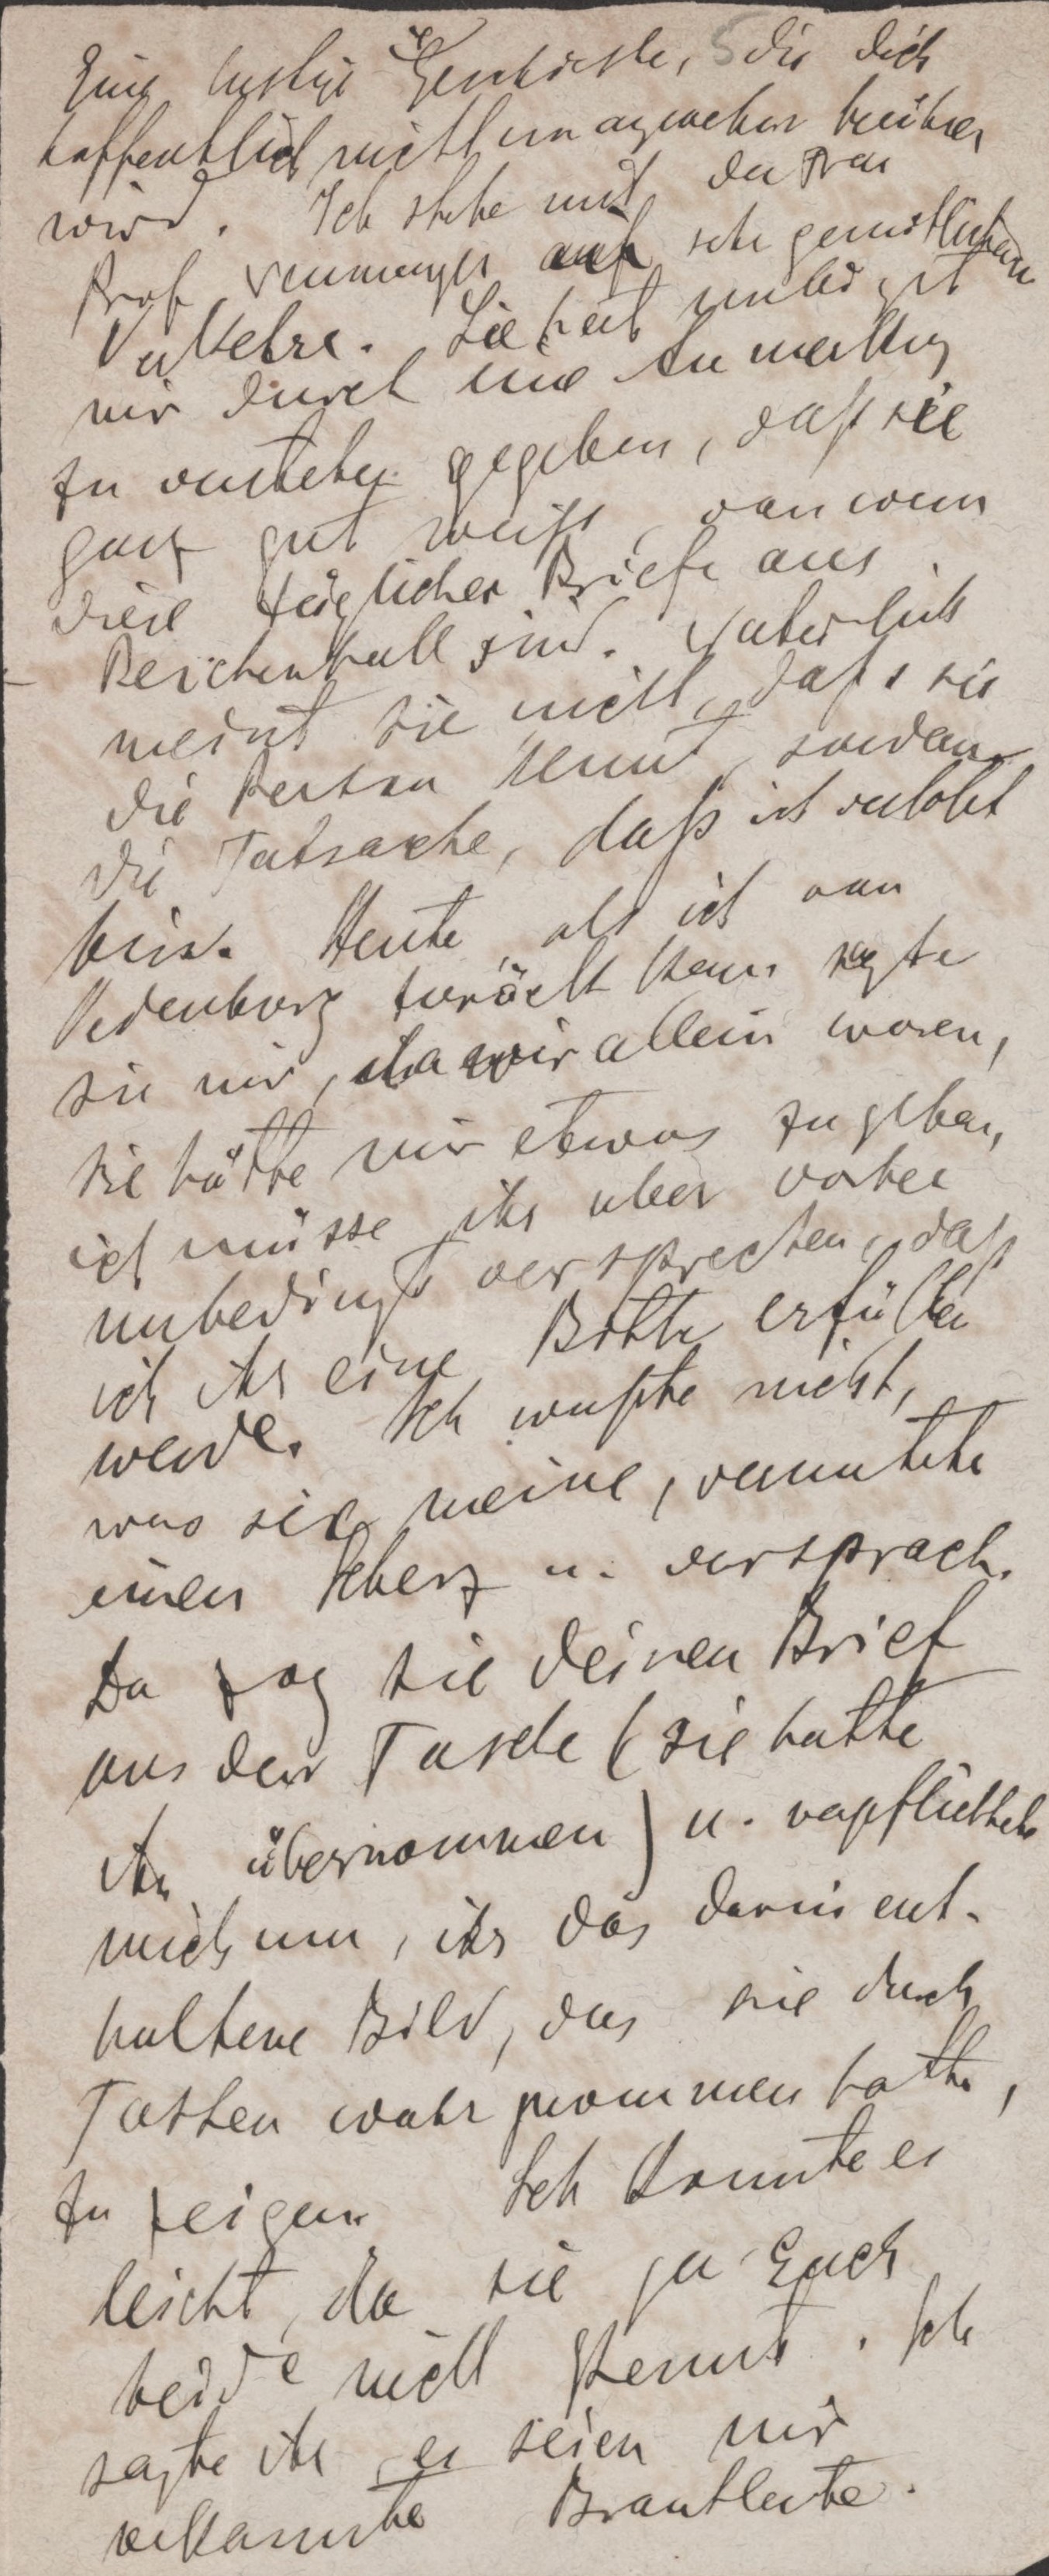 Eine lustige Geschichte, die Dich
hoffentlich nicht unangenehm berühren
wird. Ich stehe mit der Frau
Prof. auf sehr gemütlichem
Verkehre. Sie hat unlängst
mir durch eine Anmerkung
zu verstehen gegeben, daß sie
ganz gut weiß, von wem
diese täglichen Briefe aus
Reichenhall sind. Natürlich
meint sie nicht, daß sie
die Person kennt, sondern
die Tatsache, daß ich verlobt
bin. Heute, als ich von
Ödenburg zurück kam sagte
sie mir, da wir allein waren,
sie hätte mir etwas zu geben,
ich müsse ihr aber vorher
unbedingt versprechen, daß
ich ihr eine Bitte erfüllen
werde. Ich wußte nicht,
was sie meine, vermutete
einen Scherz u. versprach.
Da zog sie Deinen Brief
aus der Tasche (sie hatte
ihn übernommen) u. verpflichtete
mich nun, ihr das darin ent-
haltene Bild, das sie durch
Tasten wahrgenommen hatte,
zu zeigen. Ich konnte es
leicht, da sie ja Euch
beide nicht kennt. Ich
sagte ihr, es seien mir
bekannte Brautleute.